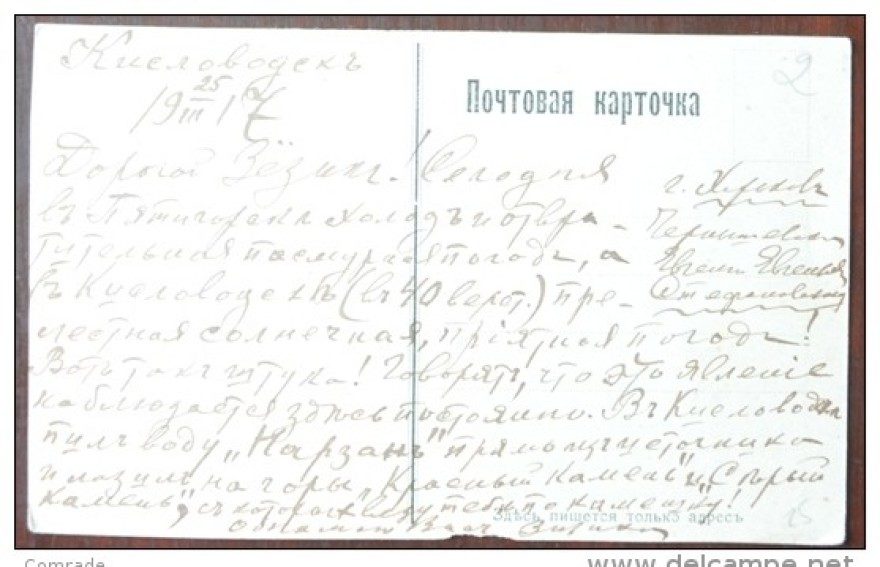 Кисловодскъ
25
19 III 17
Почтовая карточка
2
Дорогой ! Сегодня
въ Пятигорскѣ холодъ и отвра-
тительная пасмурная погода, а
въ Кисловодскѣ (въ 40 верст.) пре-
лестная солнечная, пріятная погода!
Вотъ такъ штука! Говорятъ, что это явленіе
наблюдается здѣсь постоянно. Въ Кисловодскѣ
пилъ воду „Нарзанъ" прямо изъ источника
и лазилъ на горы „Красный камень" и „Сѣрый
камень", съ которых везу тебѣ по камешку!
г. Харьковъ
Евгенію
Здѣсь пишется только адресъ
15
Comrade
www.delcampe.net